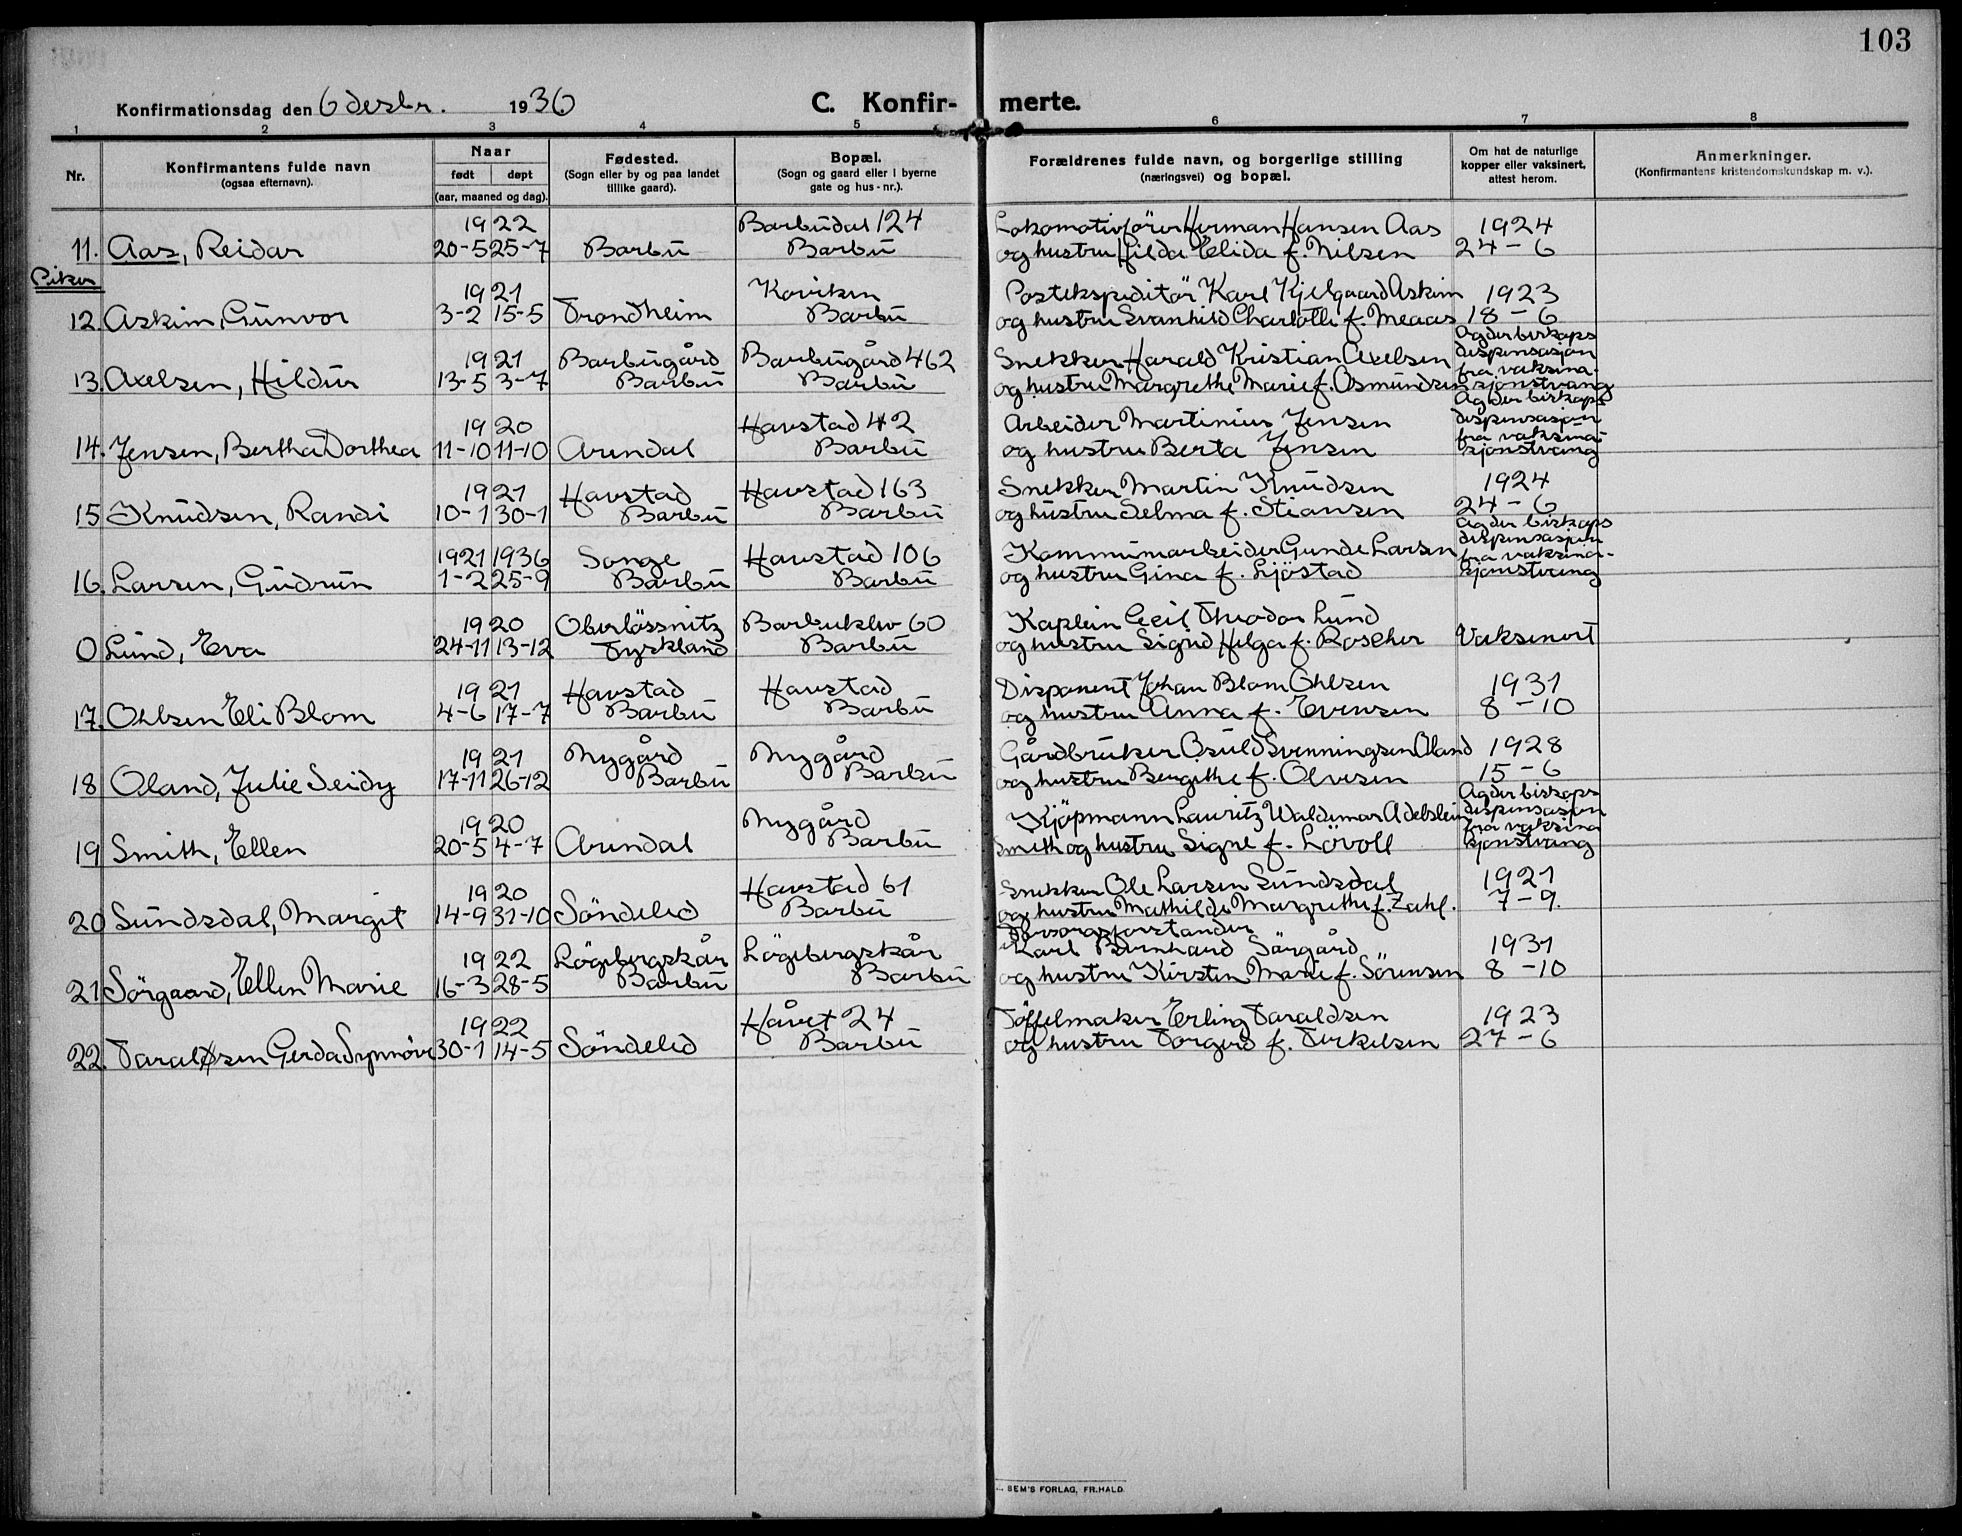 103
Konfirmationsdag den 6 desbr. 1936 C. Konfir- merte.
1 2 3 4 5 6 7 8
Nr. Konfirmantens fulde navn (ogsaa efternavn). Naar født døpt (aar, maaned og dag). Fødested. (Sogn eller by og paa landet tillike gaard). Bopæl. (Sogn og gaard eller i byerne gate og hus-nr.). Forældrenes fulde navn, og borgerlige stilling (næringsvei) og bopæl. Om hat de naturlige kopper eller vaksinert, attest herom. Anmerkninger. (Konfirmantens kristendomskundskap m. v.).
1922 Barbudal 124 Lokomotivförer Herman Hansen Aas 1924
11. Aas, Reidar 20-5 25-7 Barbu Barbu og hustru Hilda Elida f. Nilsen 24-6
Piker
1921 Koviken Postekspeditör Karl Kjelgaard Askim 1923
12. Askim, Gunvor 3-2 15-5 Trondheim Barbu og hustru Svanhild Charlotte f. Meaas 18-6
1921 Barbugård Barbugård 462 Snekker Harald Kristian Axelsen Agder biskaps dispensasjon
13. Axelsen, Hildur 13-5 3-7 Barbu Barbu og hustru Margrethe Marie f. Osmundsen fra vaksina- sjonstvang
1920 Havstad 42 Arbeider Martinius Jensen Agder biskaps dispensasjon
14. Jensen, Bertha Dorthea 11-10 11-10 Arendal Barbu og hustru Berta Jensen fra vaksina- sjonstvang
1921 Havstad Havstad 163 Snekker Martin Knudsen 1924
15 Knudsen, Randi 10-1 30-1 Barbu Barbu og hustru Selma f. Stiansen 24-6
1921 1936 Songe Havstad 106 Kommunearbeider Gunde Larsen Agder biskaps dispensasjon
16. Larsen, Gudrun 1-2 25-9 Barbu Barbu og hustru Gina f. Ljöstad fra vaksina- sjonstvang
1920 Oberlössnitz Barbuklev 60 Kaptein Cecil Theodor Lund
0 Lund, Eva 24-11 13-12 Tyskland Barbu og hustru Sigrid Helga f. Roscher Vaksinert
1921 Havstad Havstad Disponent Johan Blom Ohlsen 1931
17. Ohlsen Eli Blom 4-6 17-7 Barbu Barbu og hustru Anna f. Evensen 8-10
1921 Nygård Nygård Gårdbruker Osuld Svenningsen Oland 1928
18 Oland, Julie Seidy 17-11 26-12 Barbu Barbu og hustru Bergithe f. Olvesen 15-6
1920 Nygård Kjöpmann Lauritz Waldemar Adelstein Agder biskaps dispensasjon
19 Smith, Ellen 20-5 4-7 Arendal Barbu Smith og hustru Signe f. Lövoll fra vaksina sjonstvang
1920 Havstad 61 Snekker Ole Larsen Sundsdal 1921
20 Sundsdal, Margit 14-9 31-10 Söndeled Barbu og hustru Mathilde Margrethe f. Zahl. 7-9.
Forsorgsforstander
1922 Lögebergskår Lögebergskår Karl Bernhard Sörgård 1931
21 Sörgaard, Ellen Marie 16-3 28-5 Barbu Barbu og hustru Kirsten Marie f. Sörensen 8-10
1922 Håvet 24 Töffelmaker Erling Taraldsen 1923
22. Taraldsen Gerda Synnöve 30-1 14-5 Söndeled Barbu og hustru Torgerd f. Terkelsen 27-6
SEM'S FORLAG, FR.HALD